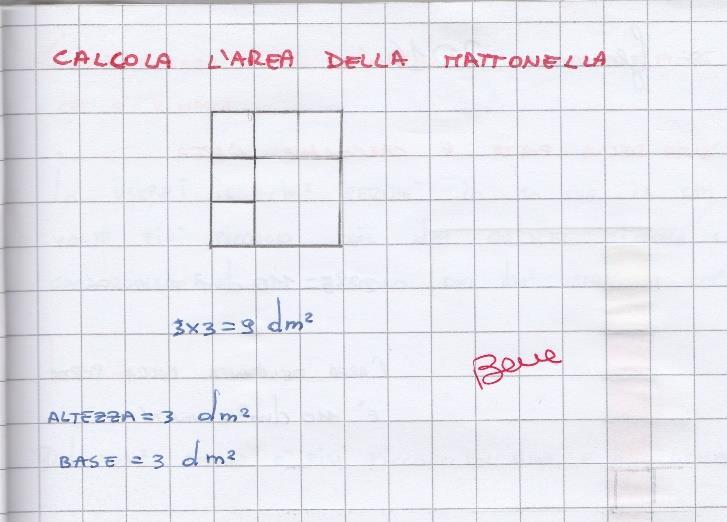 CALCOLA L'AREA DELLA MATTONELLA
3x3=9 dm²
Bene
ALTEZZA = 3 dm²
BASE = 3 dm²